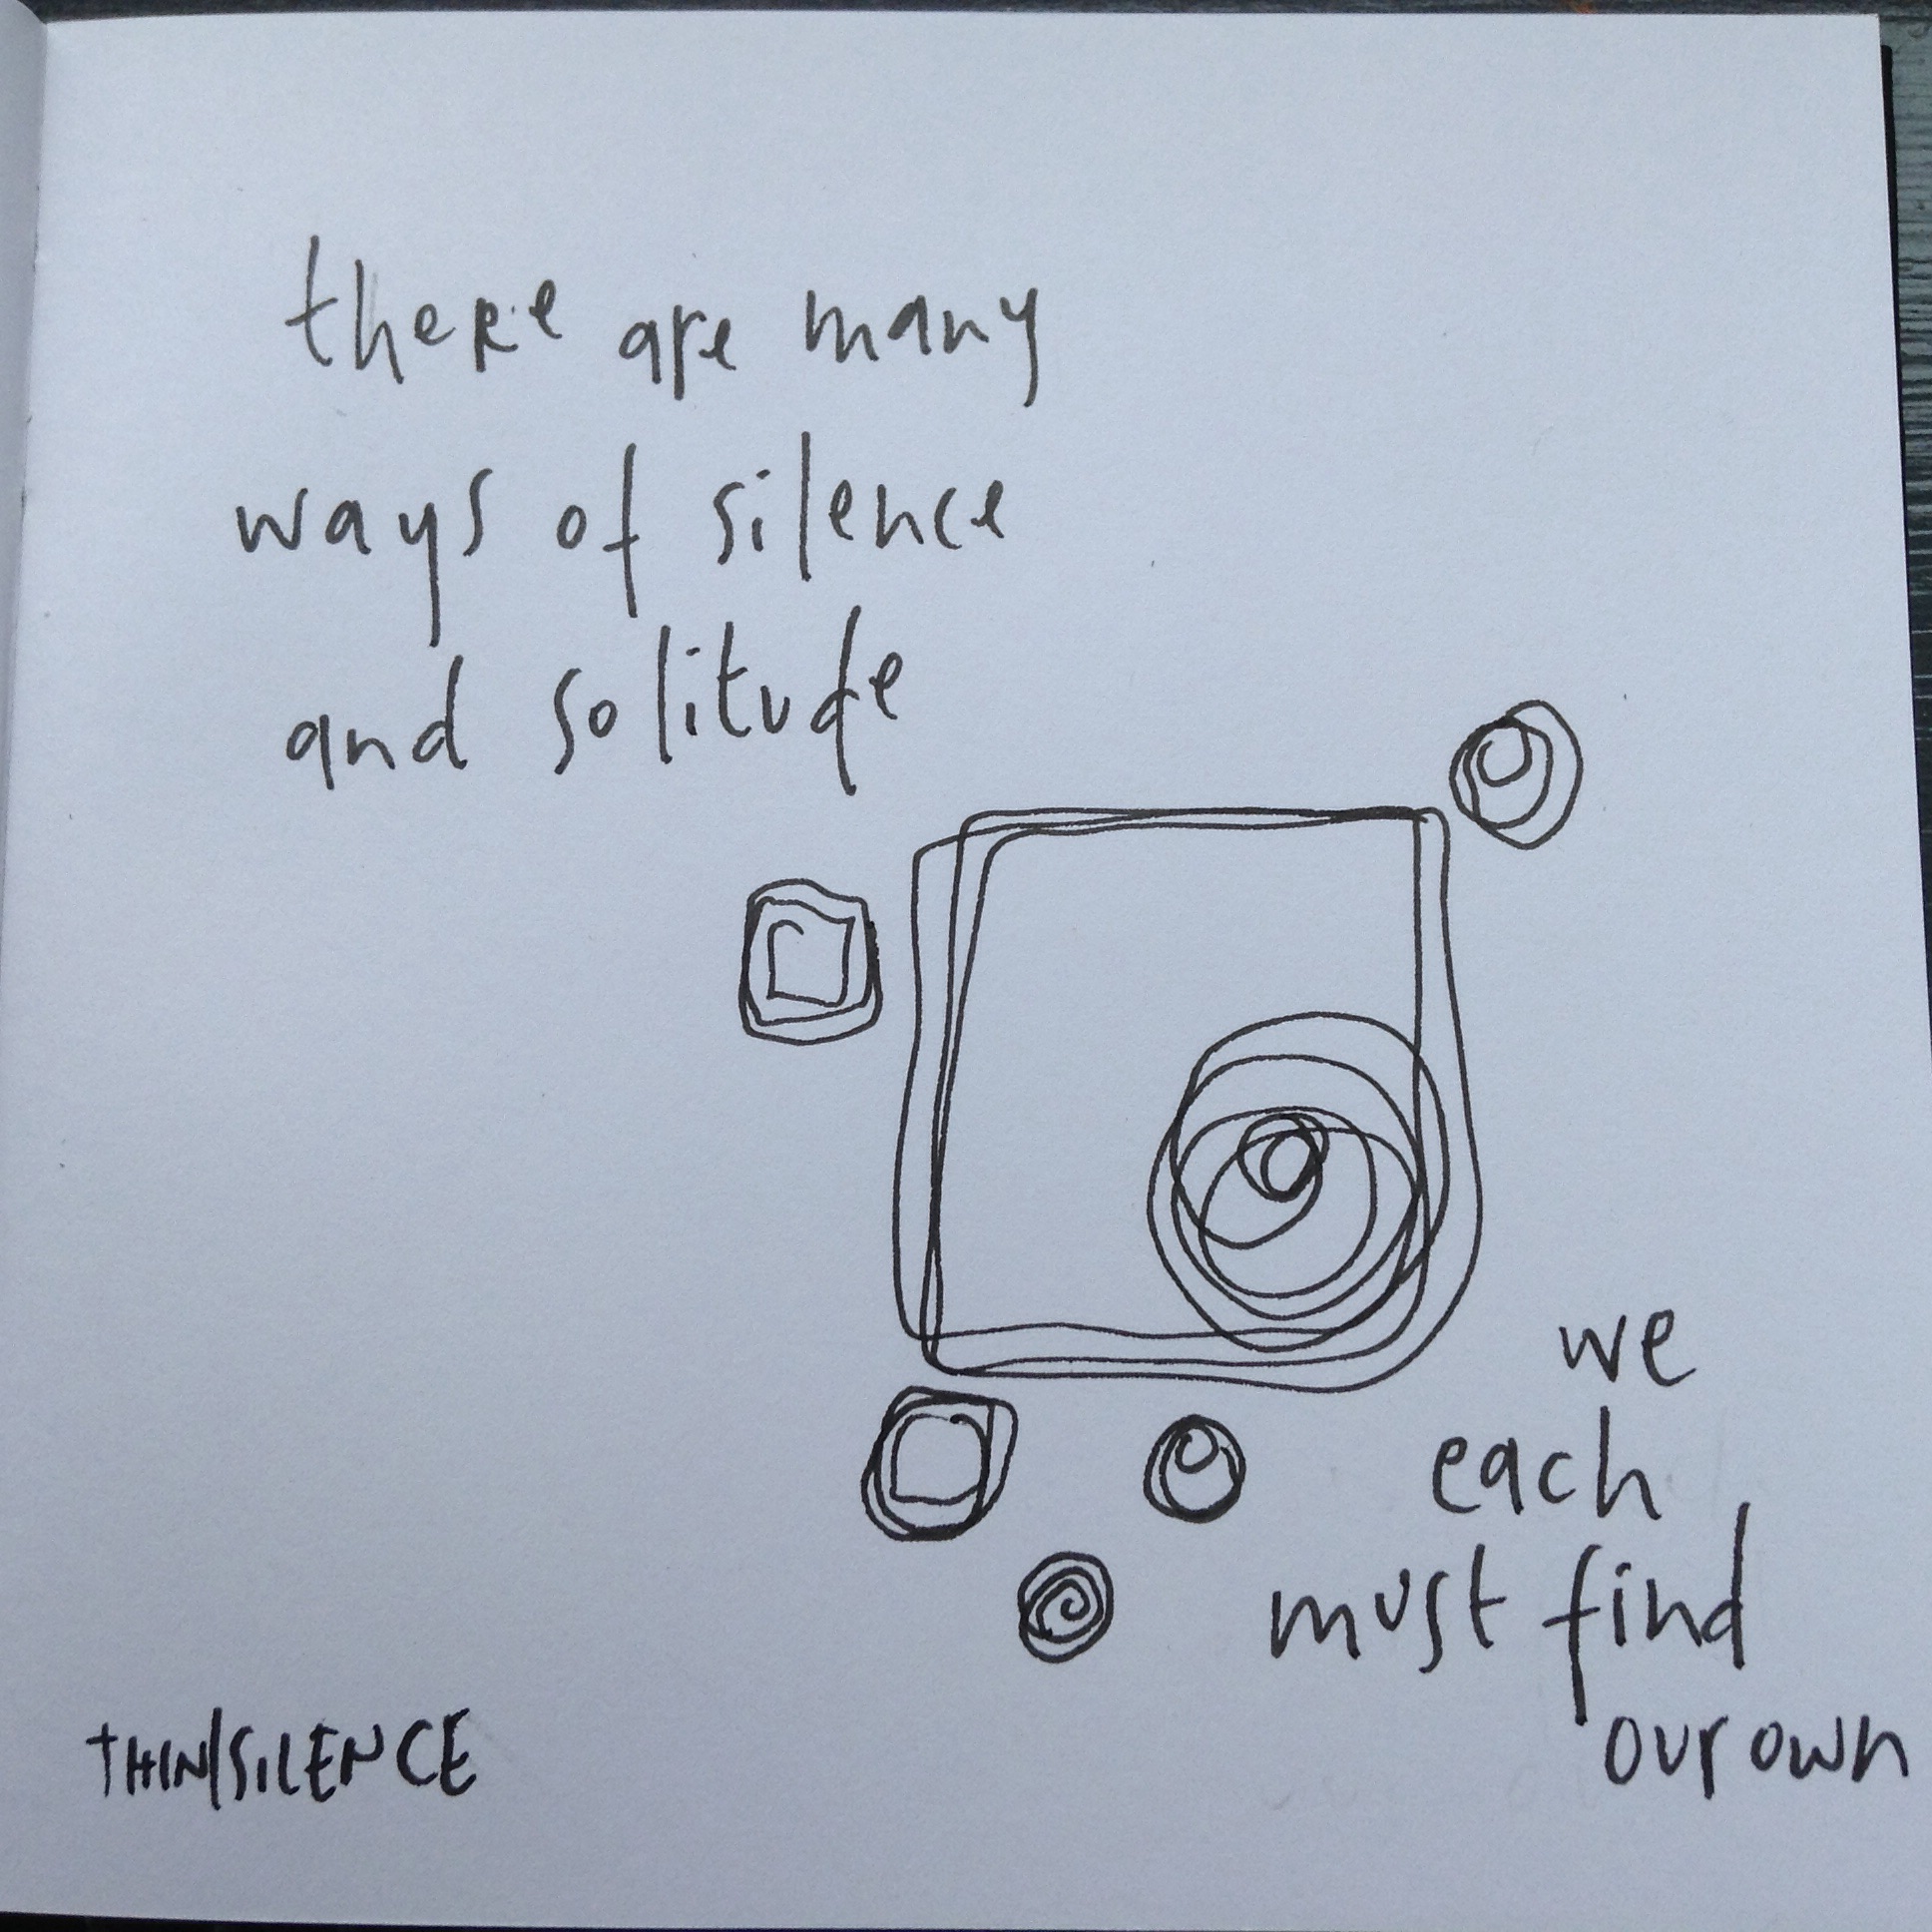 there are many
ways of silence
and solitude
we
each
must find
our own
THIN|SILENCE